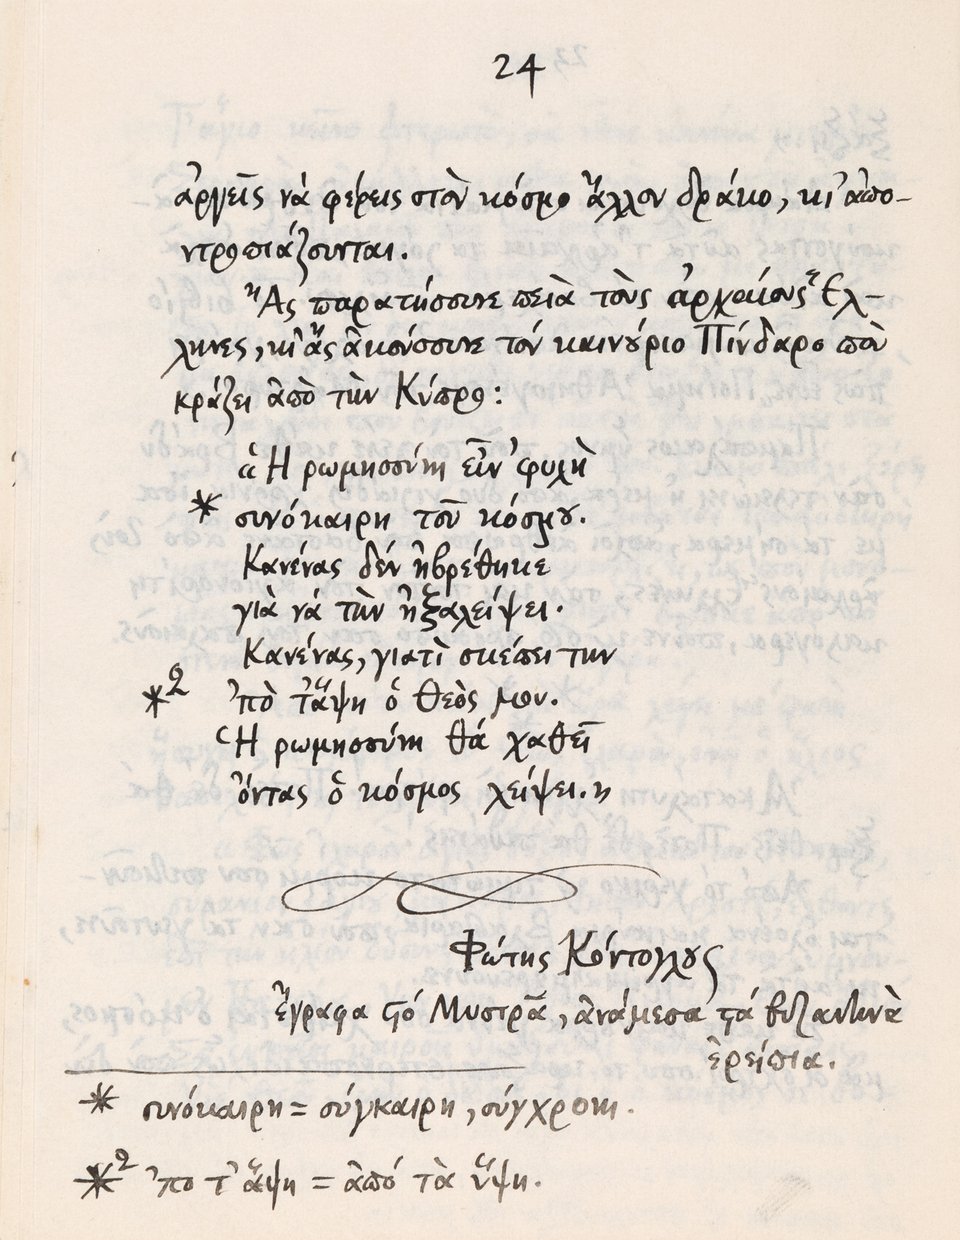 24
ἀργεῖς νὰ φέρεις στὸν κόσμο ἄλλον δράκο, κι' ἀπο-
ντροπιάζουνται.
Ἂς παρατήσουνε πειὰ τοὺς ἀρχαίους Ἕλ-
ληνες, κι' ἂς ἀκούσουνε τὸν καινούριο Πίνδαρο ποὺ
κράζει ἀπὸ τὴν Κύπρο:
« Ἡ ρωμηοσύνη εἶν' φυλὴ
* συνόκαιρη τοῦ κόσμου.
Κανένας δέν ἠβρέθηκε
γιὰ νά τὴν ἠξαλείψει.
Κανένας, γιατὶ σκέπει την
*2 'πὸ τἄψη ὁ Θεὸς μου.
Ἡ ρωμηοσύνη θά χαθεῖ
ὄντας ὁ κόσμος λείψει. »
Φώτης Κόντογλους
Ἔγραφα στό Μυστρᾶ, ἀνάμεσα στά βυζαντινὰ
ἐρείπια.
* συνόκαιρη = σύγκαιρη, σύγχρονη.
*2 'πο τ' ἄψη = ἀπό τὰ ὕψη.